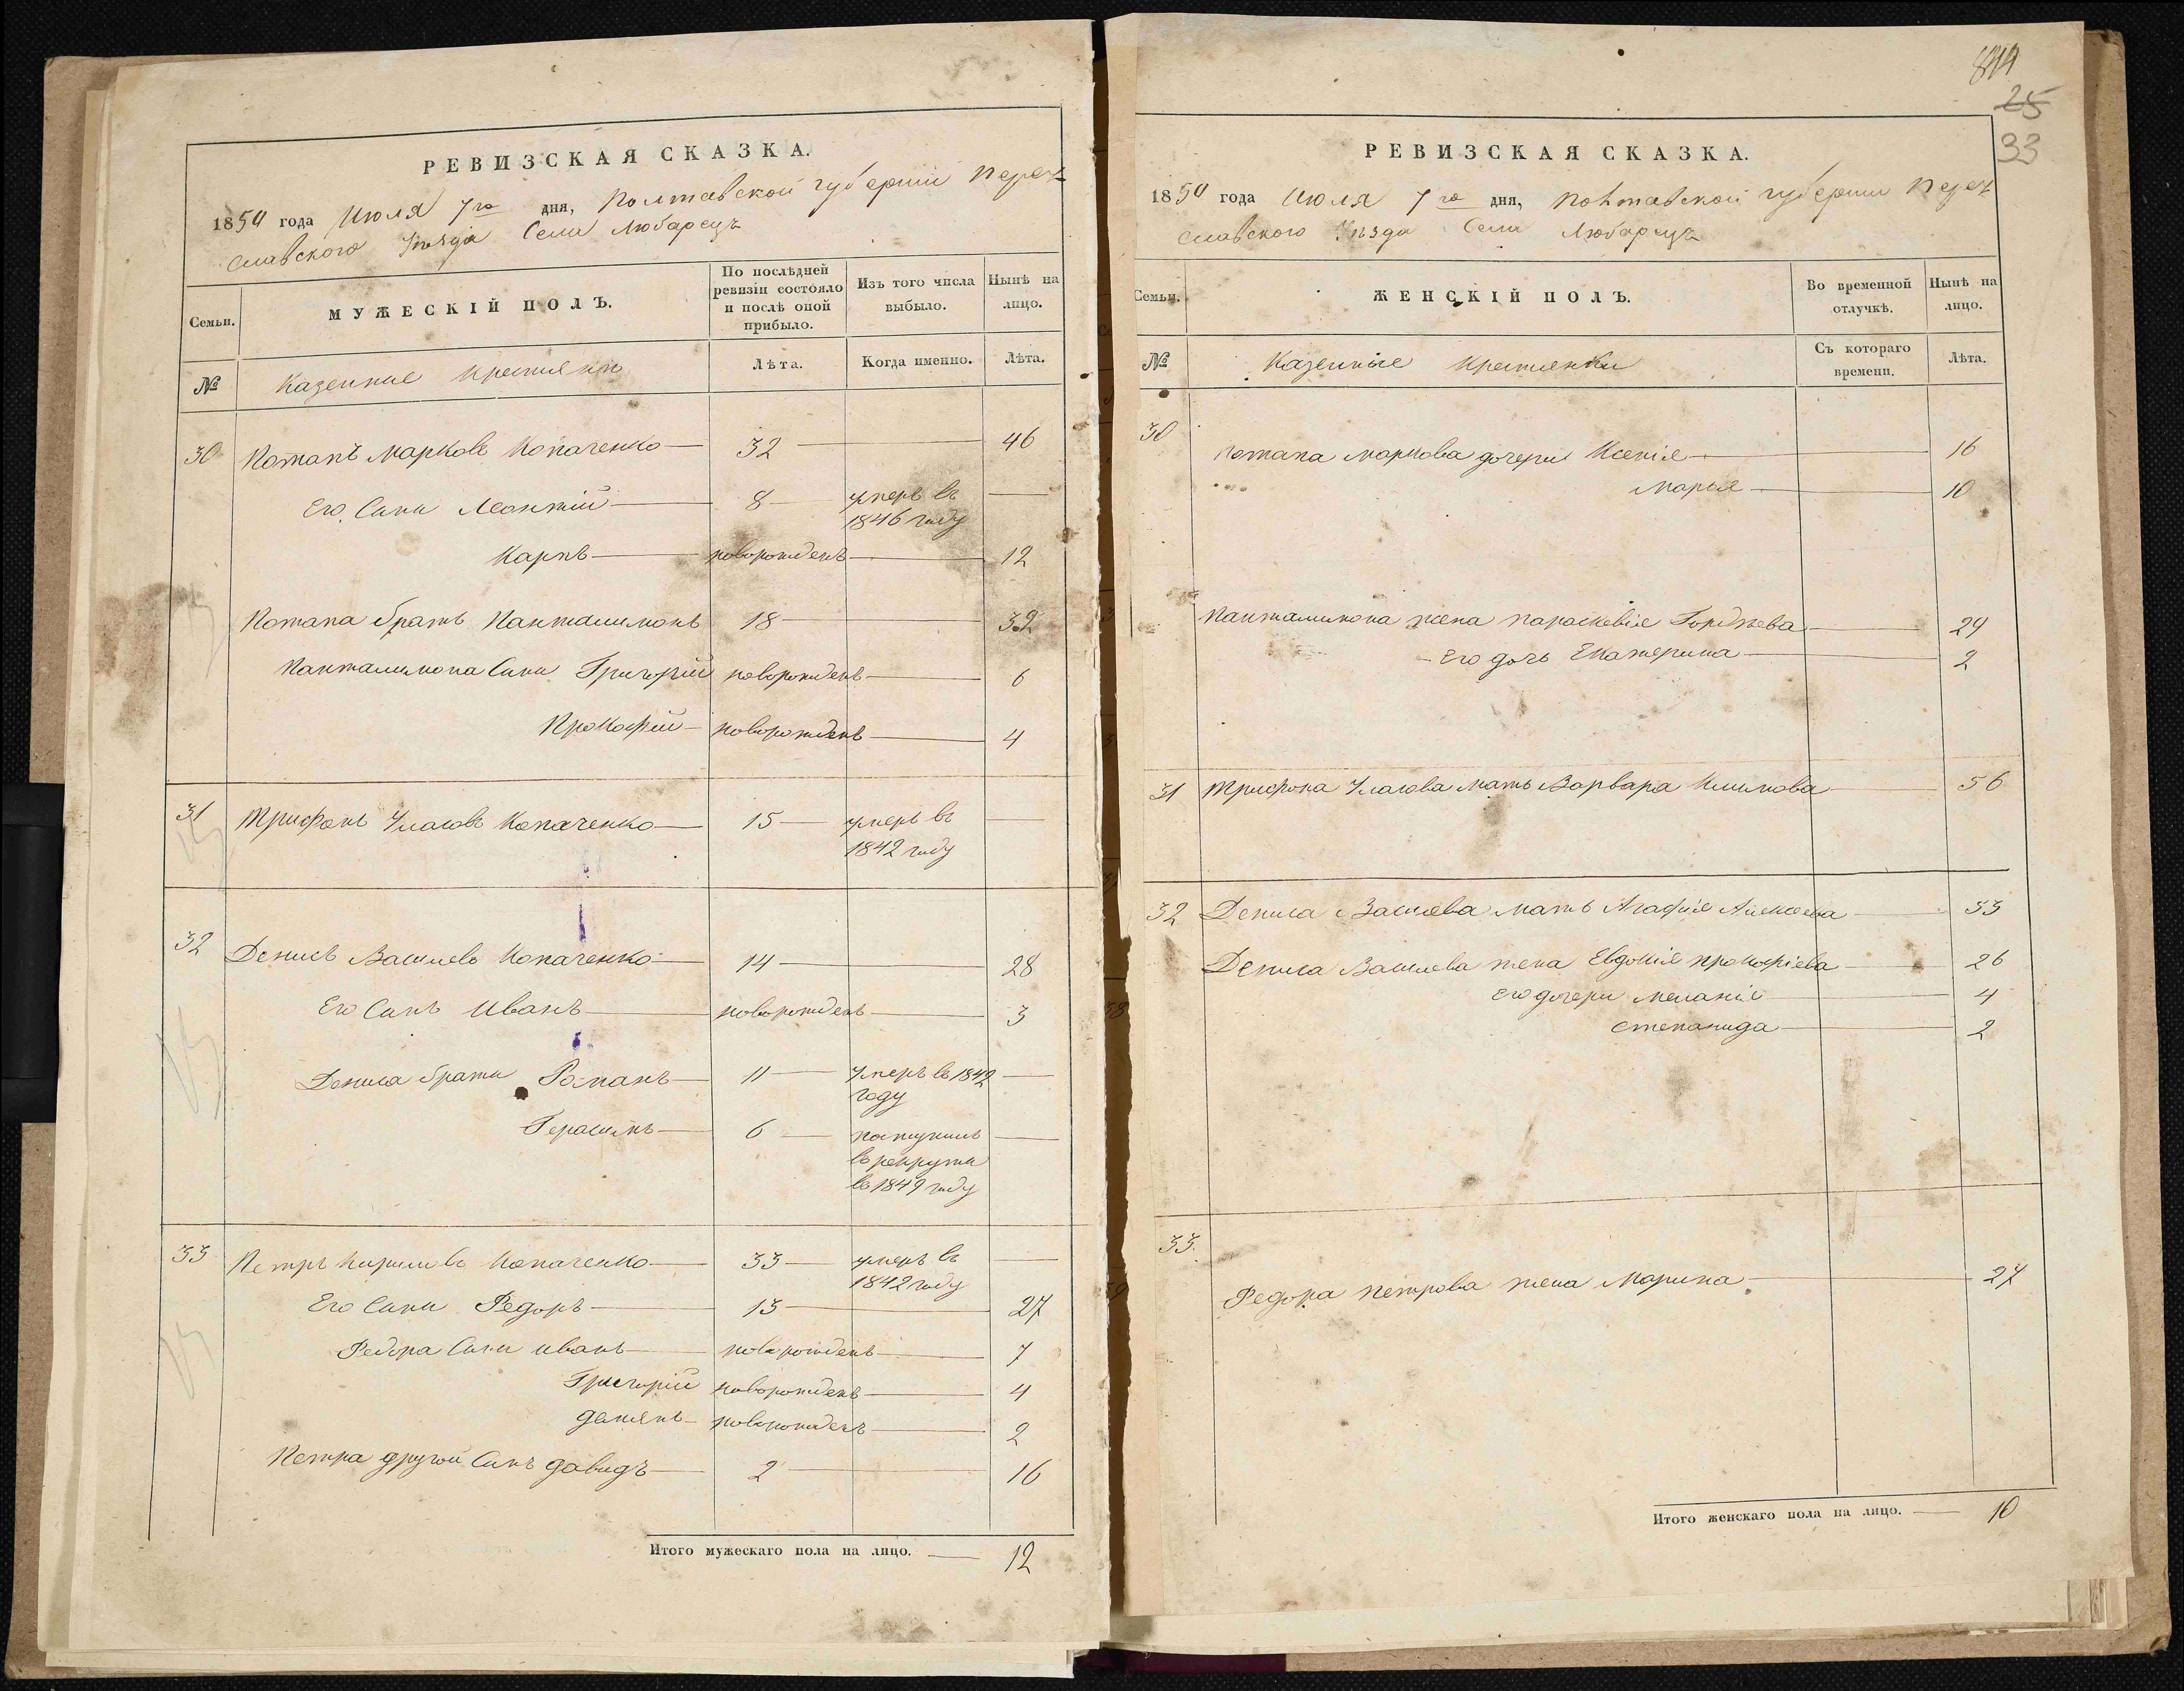 РЕВИЗСКАЯ СКАЗКА.
1850 года Июля 7го дня, Полтавской губернии Перея
славского Уѣзда Села Любарецъ
Семьи.
МУЖЕСКІЙ ПОЛЪ.
По послѣдней ревизіи состояло и послѣ оной прибыло.
Изъ того числа выбыло.
Нынѣ на лицо.
№
Казенние крестяни
Лѣта.
Когда именно.
Лѣта.
30 Потапъ Марковъ Копаченко 32 46
Его Сини Леонтій 8 умеръ въ
1846 году
Карпъ новорожденъ 12
Потапа братъ Панталимонъ 18 32
Панталимона Сини Григорій новорожденъ 6
Прокофій новорожденъ 4
31 Трифонъ Уласовъ Копаченко 15 умеръ въ
1842 году
32 Денисъ Василевъ Копаченко 14 28
Его Синъ Иванъ новорожденъ 3
Дениса брати Романъ 11 умеръ въ 1842
году
Герасимъ 6 поступилъ
въ рекрути
въ 1849 году
33 Петръ Кириловъ Копаченко 33 умеръ въ
1842 году
Его Сини Федоръ 13 27
Федора Сини иванъ новорожденъ 7
Григорій новорожденъ 4
демянъ новорожденъ 2
Петра другой Синъ давидъ 2 16
Итого мужескаго пола на лицо. 12
844
25
33
РЕВИЗСКАЯ СКАЗКА.
1850 года Июля 7го дня, Полтавской губернии Перея
славского Уѣзда Села Любарецъ
Семьи.
ЖЕНСКІЙ ПОЛЪ.
Во временной отлучкѣ.
Нынѣ на лицо.
№
Казенние крестянки
Съ котораго времени.
Лѣта.
30
потапа маркова дочери Ксенія 16
Марья 10
Панталимона жена параскевія Гордѣева 24
Его дочь Екатерина 2
31 Трифона Уласова мать Варвара Климова 56
32 Дениса Василева мать Агафія Алексеева 53
Дениса Василева жена Евдокія прокофіева 26
Его дочери меланія 4
степанида 2
33.
Федора петрова жена Марина 27
Итого женскаго пола на лицо. 10